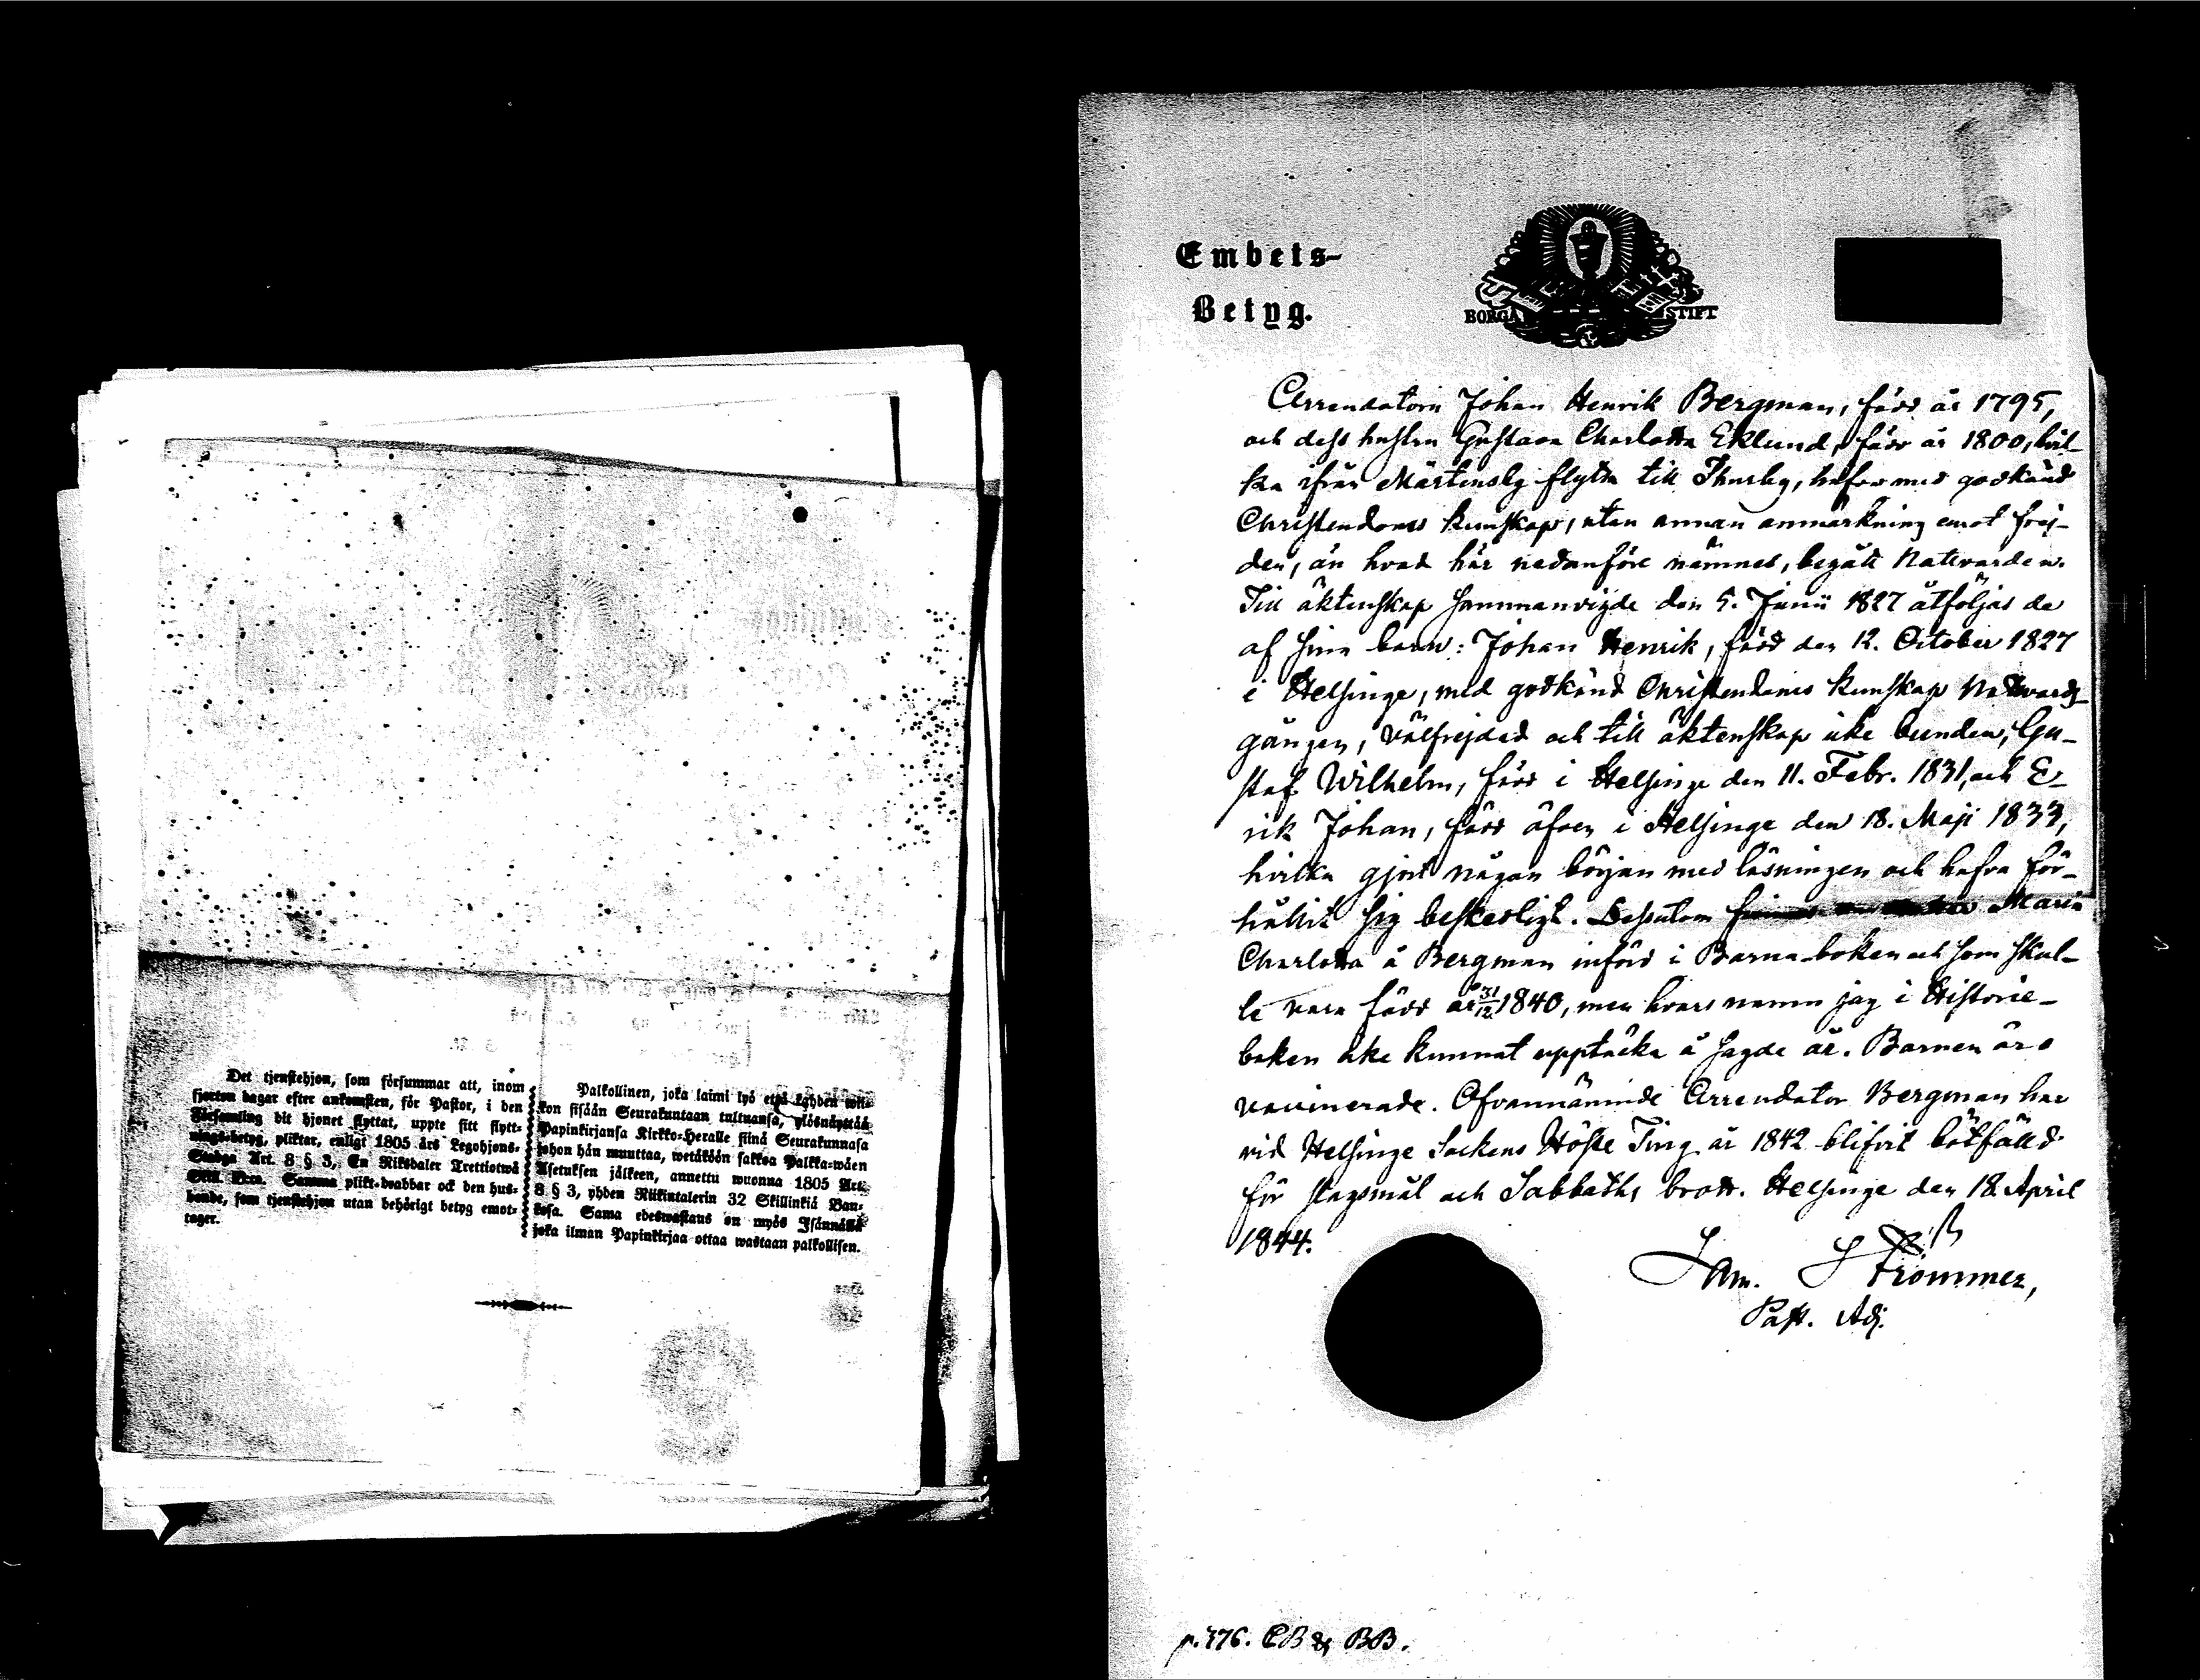 Det tjenstehjon, som försummar att, inom
fjorton dagar efter ankomsten, för Pastor, i den
Församling dit hjonet flyttat, uppte sitt flytt-
nings-betyg, pliktar, enligt 1805 års Legohjons-
Stadga Art. 8 § 3, En Riksdaler Trettiotwå
Skill. Bco. Samma plikt drabbar ock den hus-
bonde, som tjenstehjon utan behörigt betyg emot-
tager.
Palkollinen, joka laimi lyö että kahden wii-
kon sisään Seurakuntaan tultuansa, ylösnäyttää
Papinkirjansa Kirkko-Heralle siinä Seurakunnasa
johon hän muuttaa, wetäköön sakkoa Palkka-wäen
Asetuksen jälkeen, annettu wuonna 1805 Art.
8 § 3, yhden Riikintalerin 32 Skillinkiä Ban-
kosa. Sama edeswastaus on myös Isännällä
joka ilman Papinkirjaa ottaa wastaan palkollisen.
Embets-
Betyg.
BORGÅ STIFT
Arrendatorn Johan Henrik Bergman, född år 1795,
och dess hustru Gustava Charlotta Eklund, född år 1800, hvil-
ka ifrån Mårtensby flytta till Thusby, hafva med godkänd
Christendoms kunskap, utan annan anmärkning emot frej-
den, än hvad här nedanföre nämnes, begått Nattvarden.
Till äktenskap sammanvigde den 5. Junii 1827 åtföljas de
af sina barn: Johan Henrik, född den 12. October 1827
i Helsinge, med godkänd Christendoms kunskap Nattvards-
gången, välfrejdad och till äktenskap icke bunden, Gu-
staf Wilhelm, född i Helsinge den 11. Febr. 1831, och E-
rik Johan, född äfven i Helsinge den 18. Maji 1833,
hvilka gjort någon början med läsningen och hafva för-
hållit sig beskedligt. Dessutom Maria
Charlotta å Bergman införd i Barna-boken och som skul-
le vara född år 31/12 1840, men hvars namn jag i Historie-
boken icke kunnat upptäcka å sagde år. Barnen äro
vaccinerade. Ofvannämnde Arrendator Bergman har
vid Helsinge Sockens Höste Ting år 1842 blifvit bötfälld
för slagsmål och Sabbaths brott. Helsinge den 18. April
1844.
Sam. Strömmer,
Past. Adj.
p. 376. CB & BB.